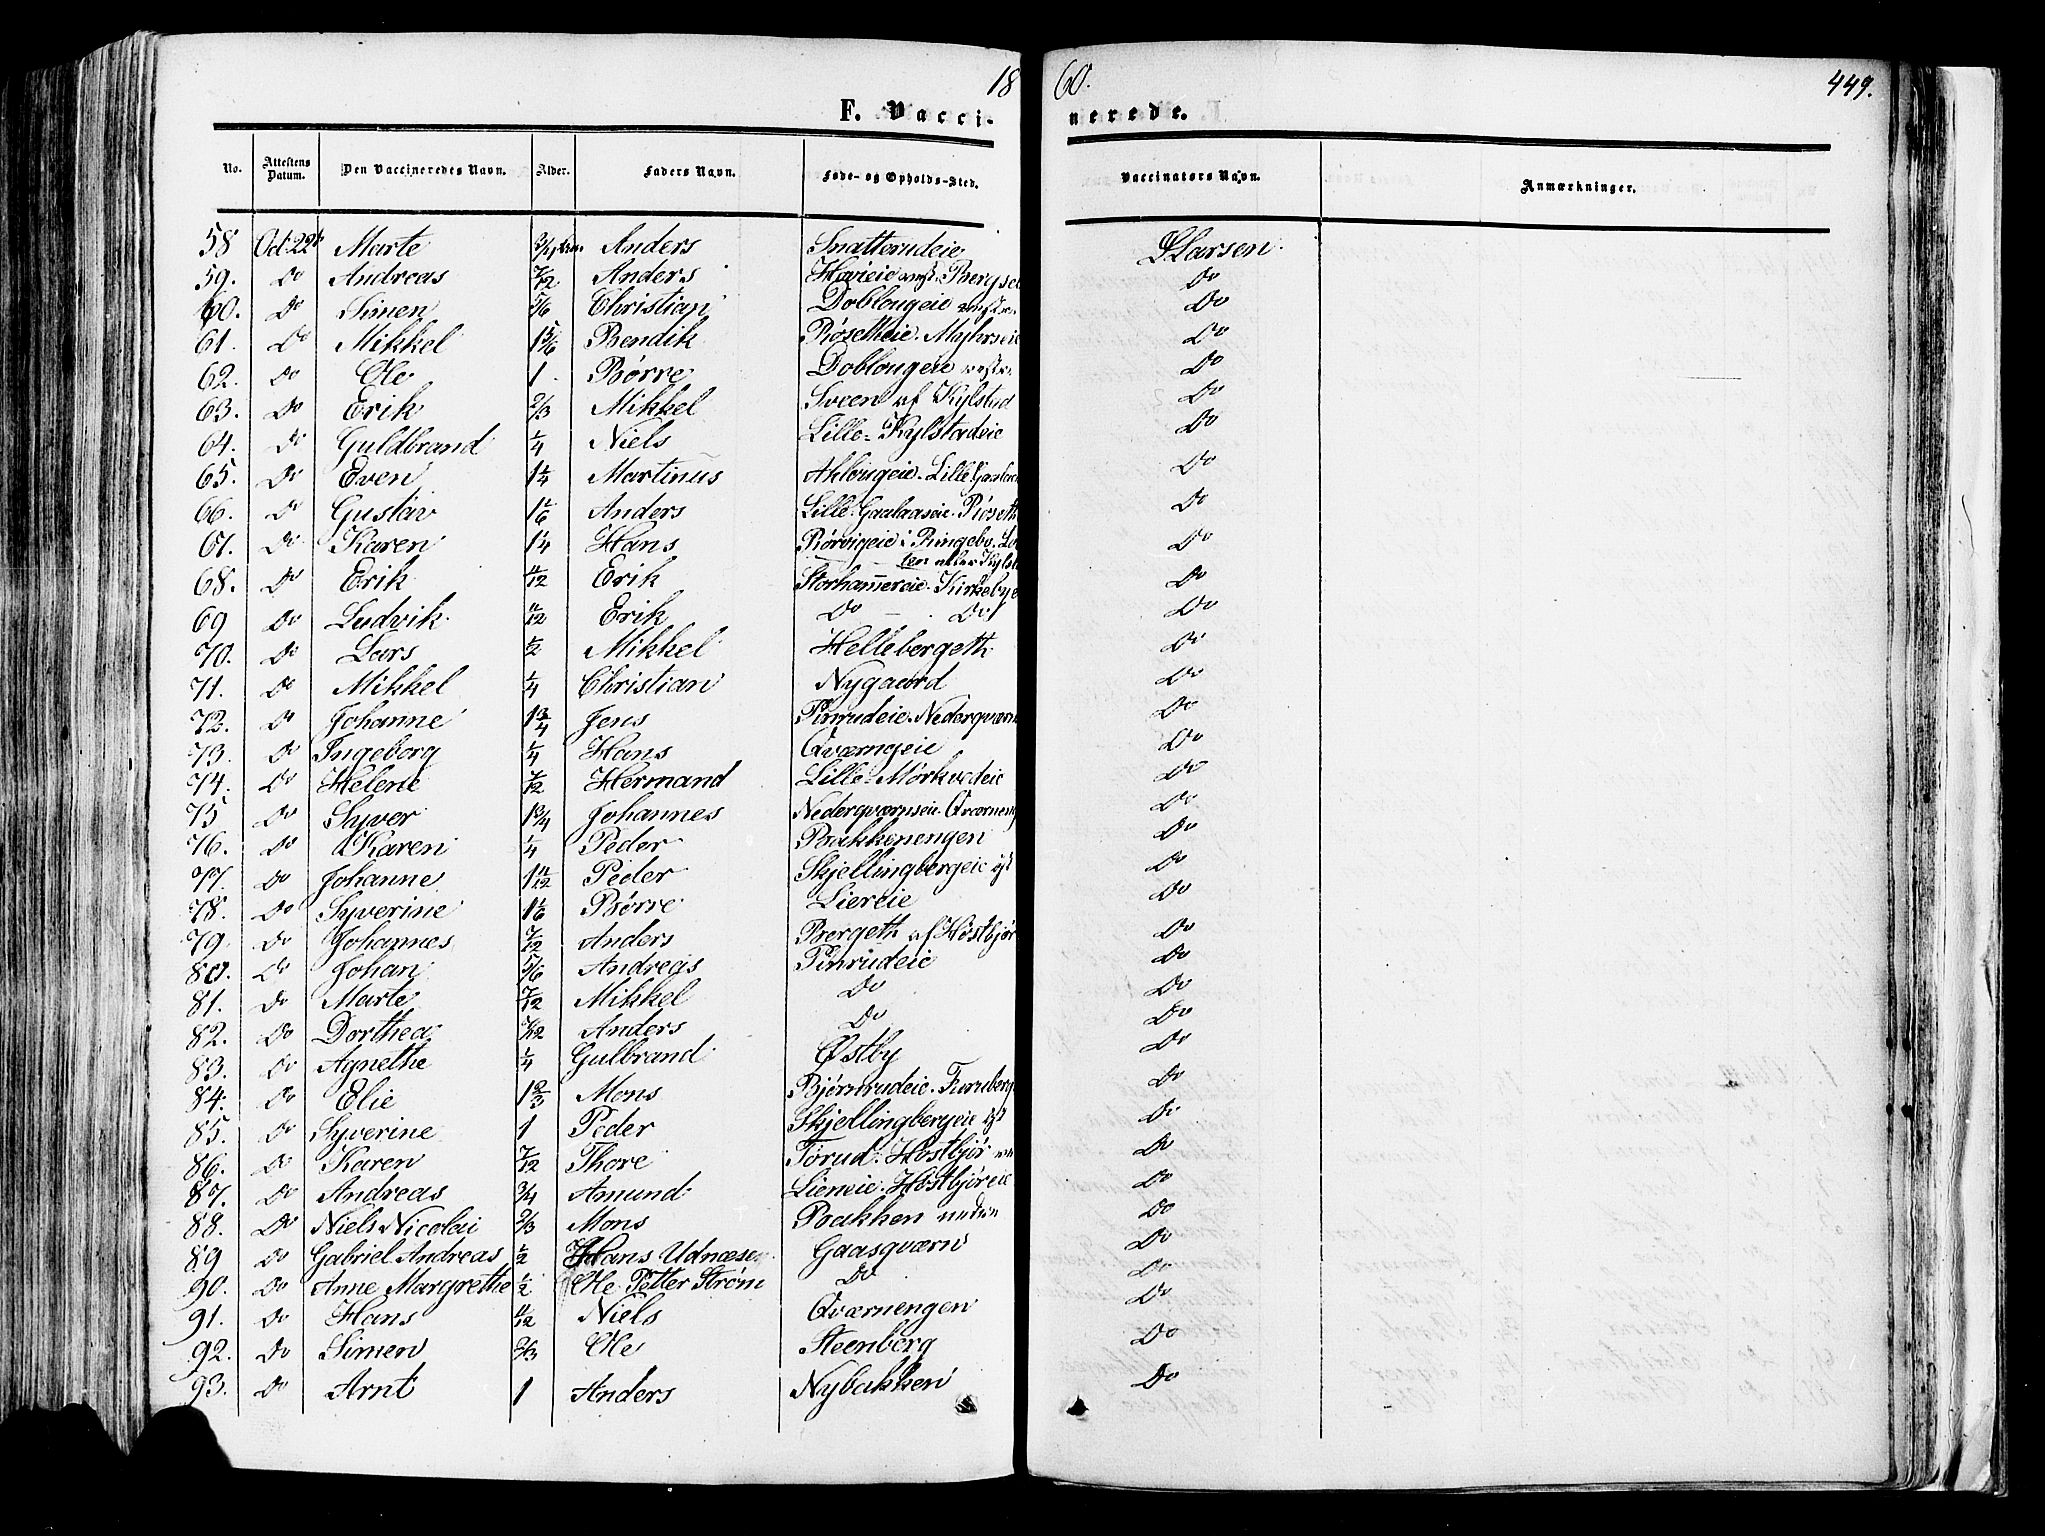 1860. 449.
F. Vaccinerede.
No. Attestens Datum. Den Vaccineredes Navn. Alder. Faders Navn. Føde- og Opholds-Sted. Vaccinators Navn. Anmærkninger.
58 Oct. 22 Marte Anders Snatterudeie Larsen
59. Do Andreas 7/12 Anders Do
60. Do Simen 5/6 Christian Doblougeie Do
61. Do Mikkel 1 5/6 Bendik Røsetheie. Myhrseie Do
62. Do Ole 1 Børre Doblougeie Do
63. Do Erik 2/3 Mikkel Sveen af Kylstad Do
64. Do Guldbrand 1/4 Niels Lille-Kylstadeie Do
65. Do Even 1 1/4 Martinus Do
66. Do Gustav 1 1/6 Anders Lille Gaalaaseie. Do
67. Do Karen 1 1/4 Hans Rørvigeie i Ringebo. Do
68. Do Erik 11/12 Erik Storhammereie. Do
69 Do Ludvik 11/12 Erik Do Do Do
70. Do Lars 1/2 Mikkel Hellebergeth Do
71. Do Mikkel 1/4 Christian Nygaard Do
72. Do Johanne 1 3/4 Jens Finrudeie. Do
73. Do Ingeborg 1/4 Hans Qværngeie Do
74. Do Helene 7/12 Hermand Lille Mørkvedeie Do
75 Do Syver 1 3/4 Johannes Nederqværnseie. Do
76. Do Karen 1/4 Peder Bakkenengen Do
77. Do Johanne 1 11/12 Peder Skjellingbergeie Do
78. Do Syverine 1 1/6 Børre Liereie Do
79. Do Johannes 7/12 Anders Bergeth af Høstbjør Do
80. Do Johan 5/6 Andreas Finrudeie Do
81. Do Marte 7/12 Mikkel Do Do
82. Do Dorthea Anders Do Do
83. Do Agnethe 1/4 Gulbrand Østby Do
84. Do Elie 1 2/3 Mons Bjørnrudeie. Do
85. Do Syverine 1 Peder Skjellingbergeie Do
86. Do Karen 7/12 Thore Torud. Høstbjør Do
87. Do Andreas 3/4 Amund Lieneie. Høstbjøreie Do
88. Do Niels Nicolai 2/3 Mons Bakken nedre Do
89 Do Gabriel Andreas 1/2 Hans Udnæsen Gaasqværn Do
90. Do Anne Margrethe 1/2 Ole Petter Strøm Do Do
91. Do Hans 11/12 Niels Qværnengen Do
92. Do Simen 2/3 Ole Steenberg Do
93. Do Arnt 1 Anders Nybakken Do